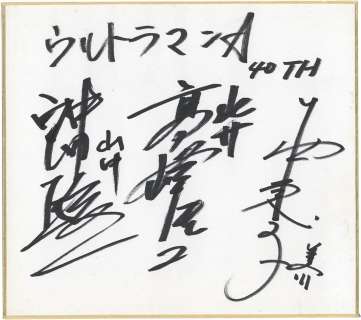 ウルトラマンA
40TH
西恵子
美川
高峰圭二
北斗
沖田駿一
山中